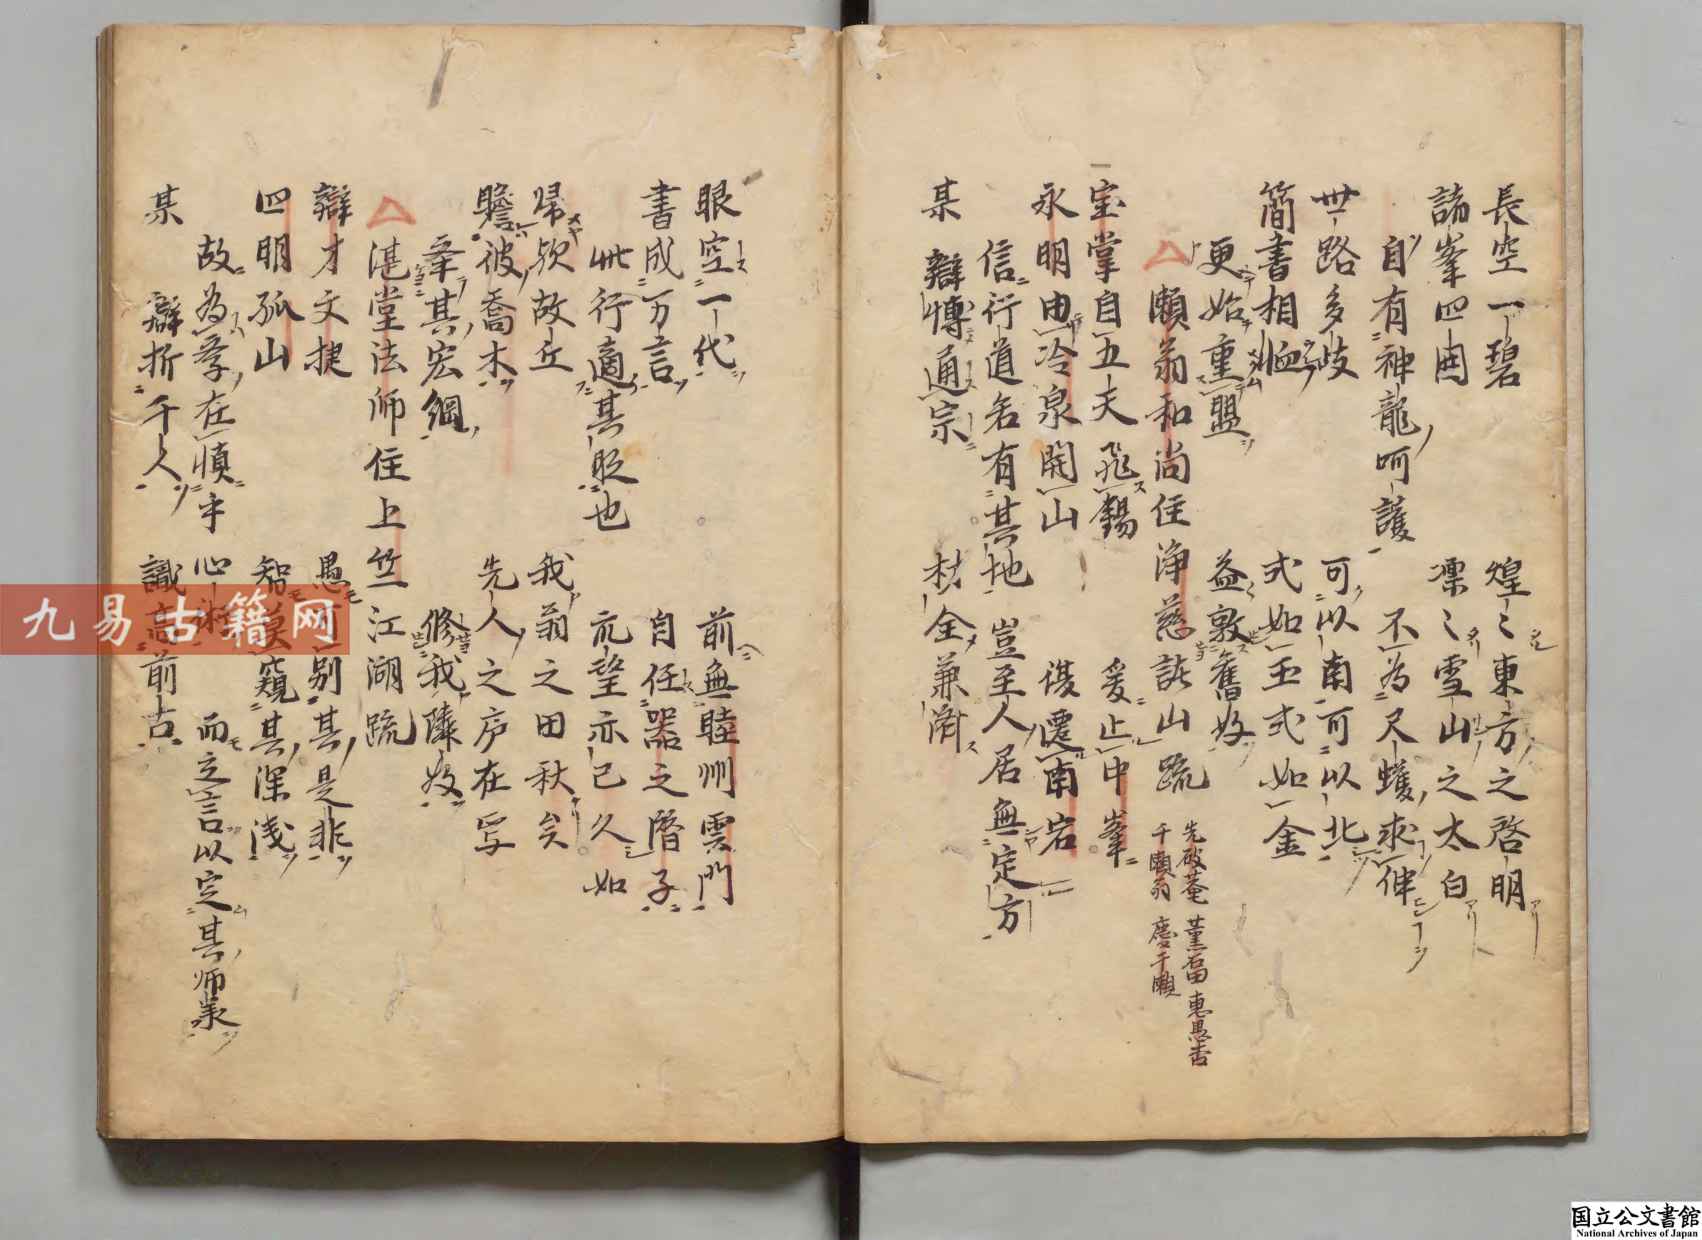 長空一碧　煌〻東方之啓明
諸峯四囲　凜〻雪山之太白
自有神龍呵護　不為尺蠖求伸
世路多岐　可以南可以北
簡書相恤　式如玉式如金
更始重盟　益敦舊好
瀬翁和尚住浄慈諸山疏
先破菴　薫石田　恵愚杏
千瀬翁　慶千瀬
宝掌自五天飛錫　爰止中峯
永明由冷泉開山　復遷南岩
信行道各有其地　豈至人居無定方
某　辯博通宗　材全兼済
眼空一代　前無睦州雲門
書成万言　自任器之潜子
此行適其貶也　亢望亦已久如
帰欤故丘　我翁之田秋矣
瞻彼喬木　先人之庐在写
牽其宏綱　修我隣好
湛堂法师住上竺江湖疏
辯才文捷　愚可别其是非
四明孤山　智莫窺其深浅
故為学在慎乎心　而立言以定其师承
某　辯折千人　識高前古
九易古籍网
国立公文書館
National Archives of Japan